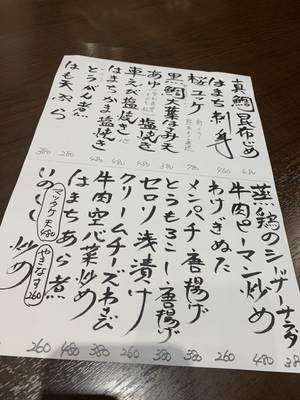 真鯛昆布じめ
はまち刺身
桜ユッケ
黒鯛大葉はみえ
あゆ塩焼き
車えび塩焼き
はまちかま塩焼き
とうがん煮
はも天ぷら
380
260
680
480
480
380
780
460
680
蒸鶏のシーザーサラダ
牛肉ピーマン炒め
わけぎぬた
メンパチ唐揚げ
とうもろこし唐揚げ
セロリ浅漬け
クリームチーズわさび
牛肉空心菜炒め
はまちあら煮
マツタケ天480
やきなす260
炒め
260
480
380
380
260
380
480
260
480